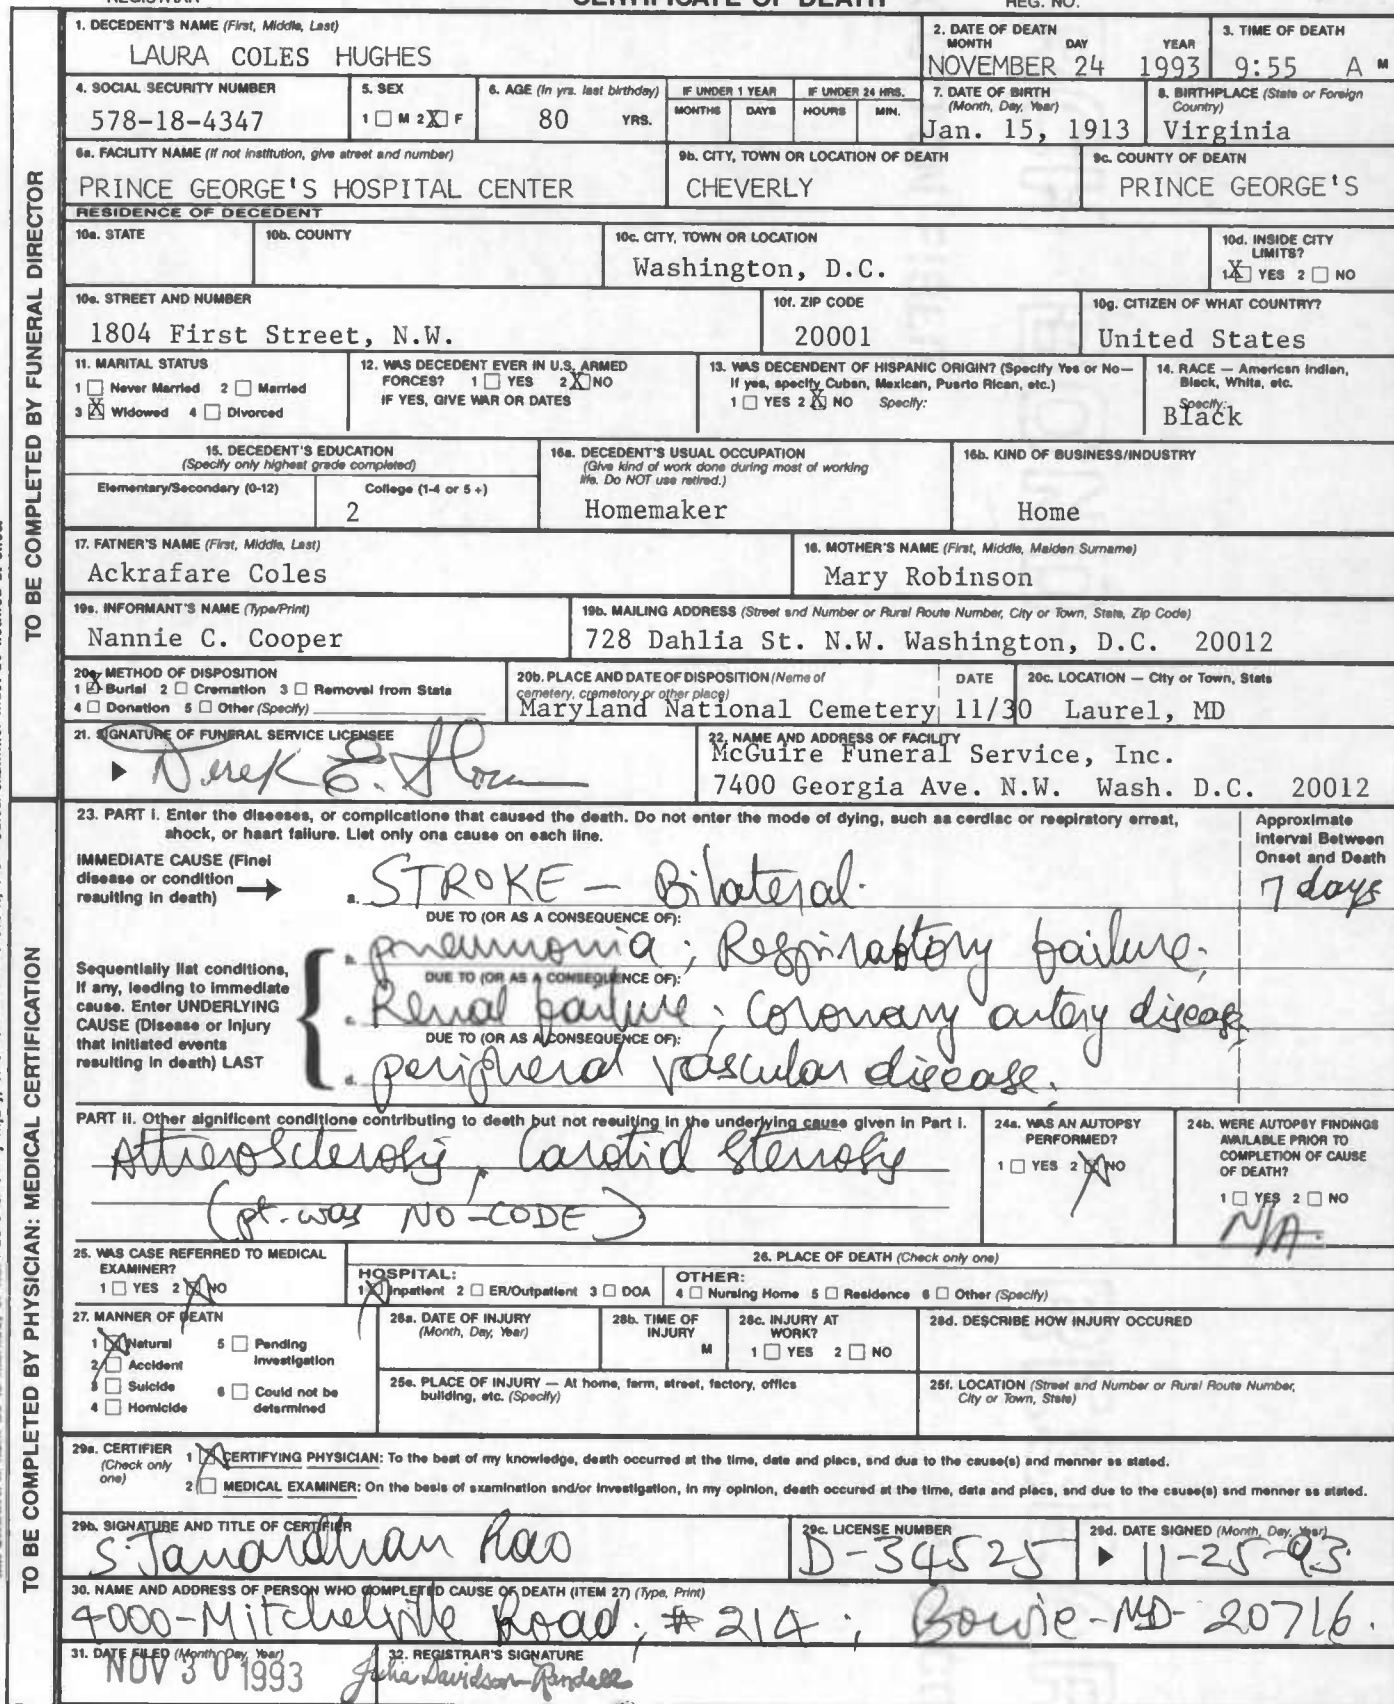 CERTIFICATE OF DEATH
REG. NO.
1. DECEDENT'S NAME (First, Middle, Last)
LAURA COLES HUGHES
2. DATE OF DEATH
MONTH DAY YEAR
NOVEMBER 24 1993
3. TIME OF DEATH
9:55 A M
4. SOCIAL SECURITY NUMBER
578-18-4347
5. SEX
1 ☐ M 2 ☒ F
6. AGE (In yrs. last birthday)
80 YRS.
IF UNDER 1 YEAR
MONTHS DAYS
IF UNDER 24 HRS.
HOURS MIN.
7. DATE OF BIRTH
(Month, Day, Year)
Jan. 15, 1913
8. BIRTHPLACE (State or Foreign
Country)
Virginia
9a. FACILITY NAME (If not institution, give street and number)
PRINCE GEORGE'S HOSPITAL CENTER
9b. CITY, TOWN OR LOCATION OF DEATH
CHEVERLY
9c. COUNTY OF DEATH
PRINCE GEORGE'S
RESIDENCE OF DECEDENT
10a. STATE
10b. COUNTY
10c. CITY, TOWN OR LOCATION
Washington, D.C.
10d. INSIDE CITY
LIMITS?
1 ☒ YES 2 ☐ NO
10e. STREET AND NUMBER
1804 First Street, N.W.
10f. ZIP CODE
20001
10g. CITIZEN OF WHAT COUNTRY?
United States
11. MARITAL STATUS
1 ☐ Never Married 2 ☐ Married
3 ☒ Widowed 4 ☐ Divorced
12. WAS DECEDENT EVER IN U.S. ARMED
FORCES? 1 ☐ YES 2 ☒ NO
IF YES, GIVE WAR OR DATES
13. WAS DECENDENT OF HISPANIC ORIGIN? (Specify Yes or No—
If yes, specify Cuban, Mexican, Puerto Rican, etc.)
1 ☐ YES 2 ☒ NO Specify:
14. RACE — American Indian,
Black, White, etc.
Specify:
Black
15. DECEDENT'S EDUCATION
(Specify only highest grade completed)
Elementary/Secondary (0-12)
College (1-4 or 5 +)
2
16a. DECEDENT'S USUAL OCCUPATION
(Give kind of work done during most of working
life. Do NOT use retired.)
Homemaker
16b. KIND OF BUSINESS/INDUSTRY
Home
17. FATHER'S NAME (First, Middle, Last)
Ackrafare Coles
18. MOTHER'S NAME (First, Middle, Maiden Surname)
Mary Robinson
19a. INFORMANT'S NAME (Type/Print)
Nannie C. Cooper
19b. MAILING ADDRESS (Street and Number or Rural Route Number, City or Town, State, Zip Code)
728 Dahlia St. N.W. Washington, D.C. 20012
20a. METHOD OF DISPOSITION
1 ☒ Burial 2 ☐ Cremation 3 ☐ Removal from State
4 ☐ Donation 5 ☐ Other (Specify)
20b. PLACE AND DATE OF DISPOSITION (Name of
cemetery, crematory or other place)
Maryland National Cemetery
DATE
11/30
20c. LOCATION — City or Town, State
Laurel, MD
21. SIGNATURE OF FUNERAL SERVICE LICENSEE
Derek E.
22. NAME AND ADDRESS OF FACILITY
McGuire Funeral Service, Inc.
7400 Georgia Ave. N.W. Wash. D.C. 20012
23. PART I. Enter the diseases, or complications that caused the death. Do not enter the mode of dying, such as cardiac or respiratory arrest,
shock, or heart failure. List only one cause on each line.
Approximate
Interval Between
Onset and Death
IMMEDIATE CAUSE (Final
disease or condition
resulting in death)
a. STROKE - Bilateral
7 days
DUE TO (OR AS A CONSEQUENCE OF):
b. pneumonia; Respiratory failure;
DUE TO (OR AS A CONSEQUENCE OF):
Sequentially list conditions,
if any, leading to immediate
cause. Enter UNDERLYING
CAUSE (Disease or injury
that initiated events
resulting in death) LAST
c. Renal failure; Coronary artery disease
DUE TO (OR AS A CONSEQUENCE OF):
d. peripheral vascular disease.
PART II. Other significant conditions contributing to death but not resulting in the underlying cause given in Part I.
Atherosclerosis, Carotid Stenosis
(pt. was NO-CODE)
24a. WAS AN AUTOPSY
PERFORMED?
1 ☐ YES 2 ☒ NO
24b. WERE AUTOPSY FINDINGS
AVAILABLE PRIOR TO
COMPLETION OF CAUSE
OF DEATH?
1 ☐ YES 2 ☐ NO
N/A.
25. WAS CASE REFERRED TO MEDICAL
EXAMINER?
1 ☐ YES 2 ☒ NO
26. PLACE OF DEATH (Check only one)
HOSPITAL:
1 ☒ Inpatient 2 ☐ ER/Outpatient 3 ☐ DOA
OTHER:
4 ☐ Nursing Home 5 ☐ Residence 6 ☐ Other (Specify)
27. MANNER OF DEATH
1 ☒ Natural 5 ☐ Pending
Investigation
2 ☐ Accident
3 ☐ Suicide 6 ☐ Could not be
determined
4 ☐ Homicide
28a. DATE OF INJURY
(Month, Day, Year)
28b. TIME OF
INJURY
M
28c. INJURY AT
WORK?
1 ☐ YES 2 ☐ NO
28d. DESCRIBE HOW INJURY OCCURED
28e. PLACE OF INJURY — At home, farm, street, factory, office
building, etc. (Specify)
28f. LOCATION (Street and Number or Rural Route Number,
City or Town, State)
29a. CERTIFIER
(Check only
one)
1 ☒ CERTIFYING PHYSICIAN: To the best of my knowledge, death occurred at the time, date and place, and due to the cause(s) and manner as stated.
2 ☐ MEDICAL EXAMINER: On the basis of examination and/or investigation, in my opinion, death occured at the time, date and place, and due to the cause(s) and manner as stated.
29b. SIGNATURE AND TITLE OF CERTIFIER
S. Janardhan Rao
29c. LICENSE NUMBER
D-34525
29d. DATE SIGNED (Month, Day, Year)
11-25-93
30. NAME AND ADDRESS OF PERSON WHO COMPLETED CAUSE OF DEATH (ITEM 27) (Type, Print)
4000-Mitchelville Road; # 214; Bowie-MD-20716.
31. DATE FILED (Month, Day, Year)
NOV 30 1993
32. REGISTRAR'S SIGNATURE
Julia Davidson-Randall
TO BE COMPLETED BY FUNERAL DIRECTOR
TO BE COMPLETED BY PHYSICIAN: MEDICAL CERTIFICATION